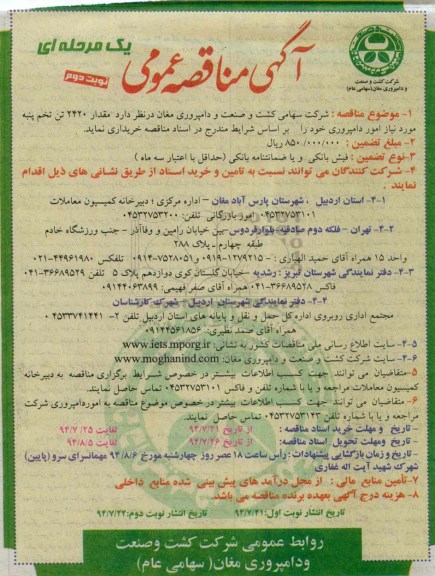 آگهی مناقصه عمومی
یک مرحله ای
نوبت دوم
شرکت کشت و صنعت
و دامپروری مغان (سهامی عام)
۱- موضوع مناقصه : شرکت سهامی کشت و صنعت و دامپروری مغان درنظر دارد مقدار ۲۴۲۰ تن تخم پنبه
مورد نیاز امور دامپروری خود را بر اساس شرایط مندرج در اسناد مناقصه خریداری نماید.
۲- مبلغ تضمین : ۸۵۰/۰۰۰/۰۰۰ ریال
۳-نوع تضمین : فیش بانکی و یا ضمانتنامه بانکی (حداقل با اعتبار سه ماه )
۴- شرکت کنندگان می توانند نسبت به تامین و خرید اسناد از طریق نشانی های ذیل اقدام
نمایند .
۴-۱- استان اردبیل ، شهرستان پارس آباد مغان - اداره مرکزی ؛ دبیرخانه کمیسیون معاملات
۰۴۵۳۲۷۵۳۱۰۱ امور بازرگانی تلفن: ۰۴۵۳۲۷۵۳۲۰۰
۴-۲- تهران - فلکه دوم صادقیه-بلوارفردوس-بین خیابان رامین و وفاآذر - جنب ورزشگاه خادم
طبقه چهارم - پلاک ۲۸۸
واحد ۱۵ همراه آقای حمید الهیاری : ۰۹۱۹-۱۲۷۹۲۱۵ و ۰۹۱۴-۷۵۲۸۰۵۱ تلفکس ۴۴۹۶۱۹۸۰-۰۲۱
۴-۳- دفتر نمایندگی شهرستان تبریز : رشدیه -خیابان گلستان کوی دوازدهم پلاک ۵ تلفن ۳۶۶۸۹۵۲۹-۰۴۱
فاکس ۳۶۶۸۹۵۲۸-۰۴۱ همراه آقای صفر فهیمی: ۰۹۱۴۴۰۶۳۸۹۹
۴-۴- دفتر نمایندگی شهرستان اردبیل - شهرک کارشناسان
مجتمع اداری روبروی اداره کل حمل و نقل و پایانه های استان اردبیل تلفن ۲- ۰۴۵۳۳۷۴۱۴۴۱
همراه آقای صمد نظیری: ۰۹۱۴۴۵۶۱۸۵۶
۴-۵- سایت اطلاع رسانی ملی مناقصات کشور به نشانی: www.iets.mporg.ir
۴-۶- سایت شرکت کشت و صنعت و دامپروری مغان: www.moghanind.com
۵-متقاضیان می توانند جهت کسب اطلاعات بیشتر در خصوص شرایط برگزاری مناقصه به دبیرخانه
کمیسیون معاملات مراجعه و یا با شماره تلفن و فاکس ۰۴۵۳۲۷۵۳۱۰۱ تماس حاصل نمایند.
۶-متقاضیان می توانند جهت کسب اطلاعات بیشتر در خصوص موضوع مناقصه به اموردامپروری شرکت
مراجعه و یا با شماره تلفن ۰۴۵۳۲۷۵۳۱۴۳ تماس حاصل نمایند.
- تاریخ و مهلت خرید اسناد مناقصه : از تاریخ ۹۴/۷/۲۱ لغایت ۹۴/۷/۲۵
- تاریخ ومهلت تحویل اسناد مناقصه: از تاریخ ۹۴/۷/۲۶ لغایت ۹۴/۸/۵
- تاریخ و زمان بازگشایی پیشنهادات : رأس ساعت ۱۸ عصر روز چهارشنبه مورخ ۹۴/۸/۶ مهمانسرای سرو (پایین)
شهرک شهید آیت اله غفاری
۷-تأمین منابع مالی : از محل درآمد های پیش بینی شده منابع داخلی
۸- هزینه درج آگهی بعهده برنده مناقصه می باشد.
تاریخ انتشار نوبت اول:۹۴/۷/۲۱ تاریخ انتشار نوبت دوم:۹۴/۷/۲۲
روابط عمومی شرکت کشت وصنعت
ودامپروری مغان( سهامی عام)